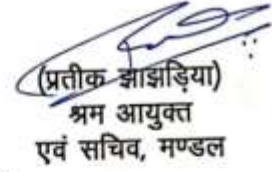 (प्रतीक झाझड़िया)
श्रम आयुक्त
एवं सचिव, मण्डल